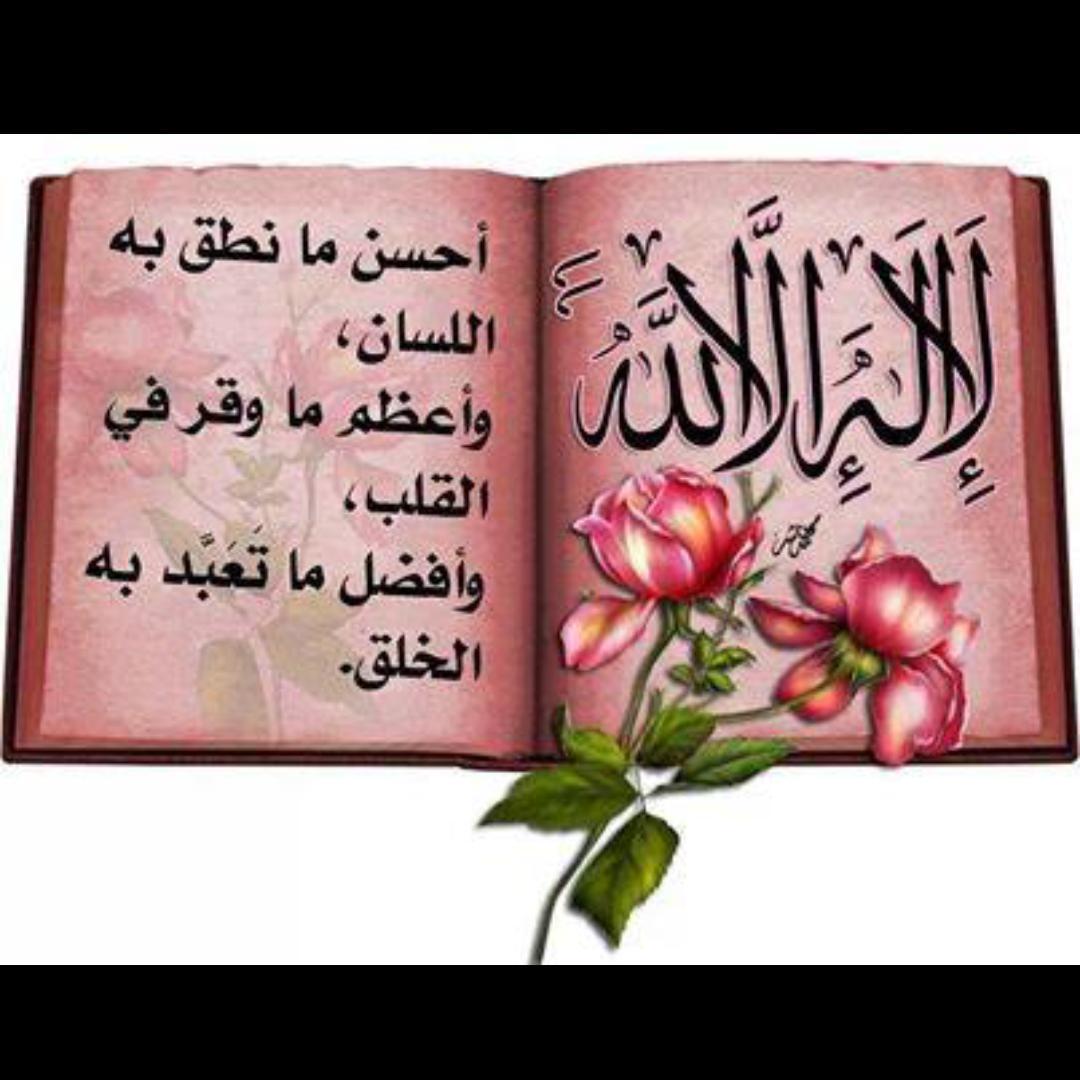 لَا إِلَٰهَ إِلَّا اللَّهُ
أحسن ما نطق به
اللسان،
وأعظم ما وقر في
القلب،
وأفضل ما تَعَبَّد به
الخلق.